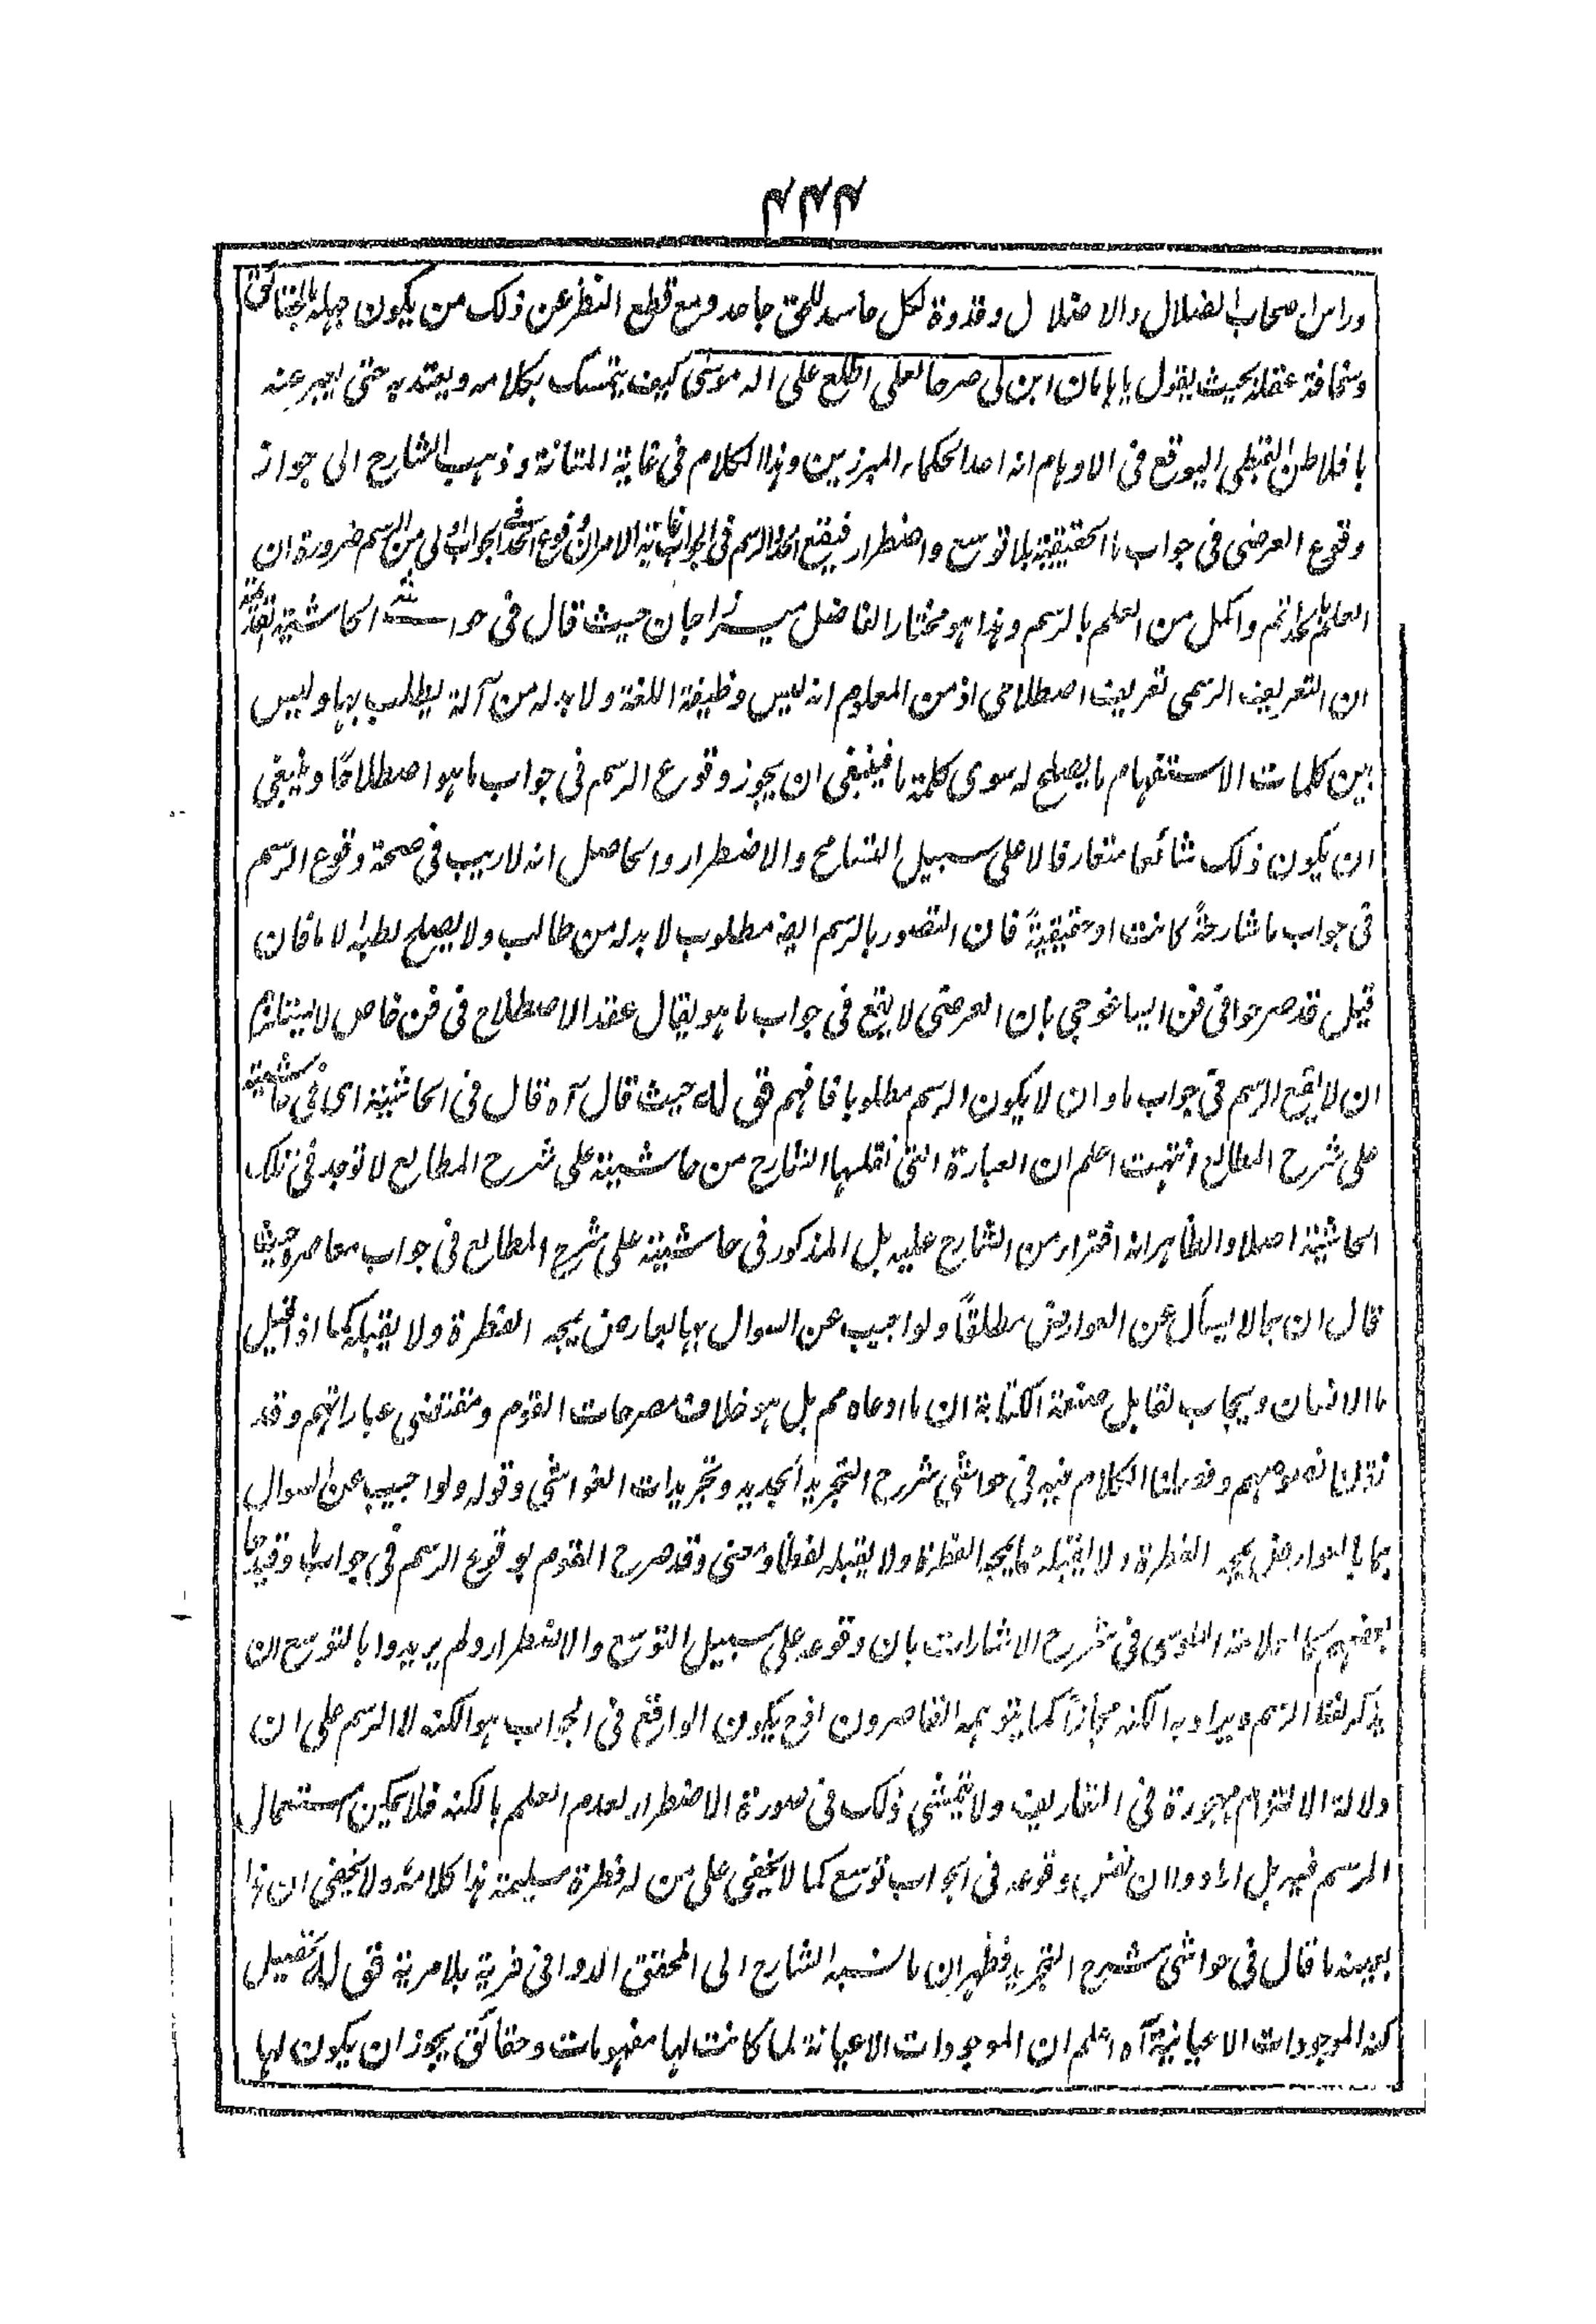 ٤٤٤
وراس اصحاب الضلال والاختلال وقدوة لكل حاسد للحق جاحد ومع قطع النظر عن ذلك من يكون جهله بالحقائق
وسخافة عقله بحيث يقول يا هامان ابن لى صرحا لعلى اطلع على اله موسى كيف يتمسك بكلامه ويعتد به حتى يعبر عنه
بافلاطن القبطى اليوقع فى الاوهام انه احد الحكماء المبرزين وهذا الكلام فى غاية المتانة وذهب الشارح الى جواز
وقوع العرضى فى جواب ما الحقيقية بلا توسع واضطرار فيقع الحد والرسم فى الجواب غاية الامر ان وقوع الحد فى الجواب اولى من الرسم ضرورة ان
العلم بالحد اتم واكمل من العلم بالرسم وهذا هو مختار الفاضل ميرزا جان حيث قال فى حواشى الحاشية القديمة
ان التعريف الرسمى تعريف اصطلاحى اذ من المعلوم انه ليس وظيفة اللغة ولا بد له من آلة يطلب بها وليس
بين كلمات الاستفهام ما يصلح له سوى كلمة ما فينبغى ان يجوز وقوع الرسم فى جواب ما هو اصطلاحا وينبغى
ان يكون ذلك شائعا متعارفا لا على سبيل التسامح والاضطرار والحاصل انه لا ريب فى صحة وقوع الرسم
فى جواب ما شارحةً كانت او حقيقيةً فان التصور بالرسم ايضا مطلوب لا بد له من طالب ولا يصلح لطلبه الا ما فان
قيل قد صرحوا فى فن ايساغوجى بان العرضى لا يقع فى جواب ما هو يقال عقد الاصطلاح فى فن خاص لا يستلزم
ان لا يقع الرسم فى جواب ما وان لا يكون الرسم مطلوبا فافهم قوله حيث قال آه قال فى الحاشية اى فى حاشيته
على شرح المطالع انتهت اعلم ان العبارة التى نقلها الشارح من حاشيته على شرح المطالع لا توجد فى تلك
الحاشية اصلا والظاهر انه افتراء من الشارح عليه بل المذكور فى حاشيته على شرح المطالع فى جواب معاصره حيث
قال ان بما لا يسأل عن العوارض مطلقاً ولو اجيب عن السوال بها بالعارض يمجه الفطرة ولا يقبله كما اذا قيل
ما الانسان ويجاب بقابل صنعة الكتابة ان ما ادعاه مم بل هو خلاف مصرحات القوم ومقتضى عباراتهم وقد
نقلنا نصوصهم وفصلنا الكلام فيه فى حواشى شرح التجريد الجديد وتجريدات الغواشى وقوله ولو اجيب عن السوال
بما بالعوارض يمجه الفطرة ولا يقبله مما يمجه الفطرة ولا يقبله لفظا ومعنى وقد صرح القوم بوقوع الرسم فى جواب ما وقيدها
بعضهم كالعلامة الطوسى فى شرح الاشارات بان وقوعه على سبيل التوسع والاضطرار ولم يريدوا بالتوسع ان
يذكر لفظ الرسم ويراد به الكنه مجازاً كما يتوهمه القاصرون اذ ح يكون الواقع فى الجواب هو الكنه لا الرسم على ان
دلالة الالتزام مهجورة فى التعاريف ولا يتمشى ذلك فى صورة الاضطرار لعدم العلم بالكنه فلا يمكن استعمال
الرسم فيه بل ارادوا ان نفس وقوعه فى الجواب توسع كما لا يخفى على من له فطرة سليمة هذا كلامه ولا يخفى ان هذا
بعينه ما قال فى حواشى شرح التجريد فظهر ان ما نسبه الشارح الى المحقق الدوانى فرية بلا مرية قوله تحصيل
كنه الموجودات الاعيانية آه اعلم ان الموجودات الاعيانة لما كانت لها مفهومات وحقائق يجوز ان يكون لها